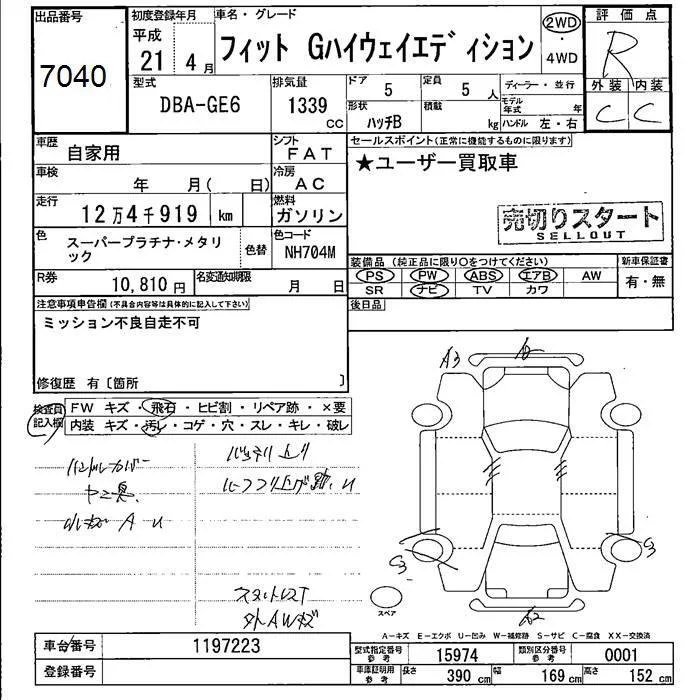 出品番号
7040
初度登録年月
平成
21年4月
車名・グレード
フィット Gハイウェイエディション
2WD
・
4WD
評価点
R
外装 内装
C C
型式
DBA-GE6
排気量
1339
CC
ドア
5
定員
5人
形状
ハッチB
積載
kg
ディーラー・並行
モデル年式
年
ハンドル 左・右
車歴
自家用
シフト
FAT
車検
年 月( 日)
冷房
AC
走行
12万4千919 km
燃料
ガソリン
色
スーパープラチナ・メタリ
ック
色替
色コード
NH704M
R券
10,810円
名変通知期限
月 日
セールスポイント(正常に機能するものに限ります)
★ユーザー買取車
売切りスタート
SELLOUT
装備品(純正品に限り○をつけてください)
PS PW ABS エアB AW
SR ナビ TV カワ
新車保証書
有・無
後日品
注意事項申告欄(不具合内容等は具体的に記入して下さい)
ミッション不良自走不可
修復歴 有〔箇所 〕
検査員記入欄
FW キズ・飛石・ヒビ割・リペア跡・×要
内装 キズ・汚レ・コゲ・穴・スレ・キレ・破レ
ハンドルカバー
ヤニ臭
バッテリ上り
A U
A3
C3
C3
A2
スペア
A-キズ E-エクボ U-凹み W-補修跡 S-サビ C-腐食 XX-交換済
車台番号
1197223
登録番号
型式指定番号
参考
15974
類別区分番号
参考
0001
車庫証明用
参考
長さ 390 cm 幅 169 cm 高さ 152 cm